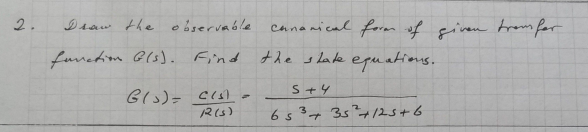 2. Draw the observable canonical form of given transfer
function G(s). Find the state equations.
G(s) = C(s)/R(s) = s+4/6s³+3s²+12s+6